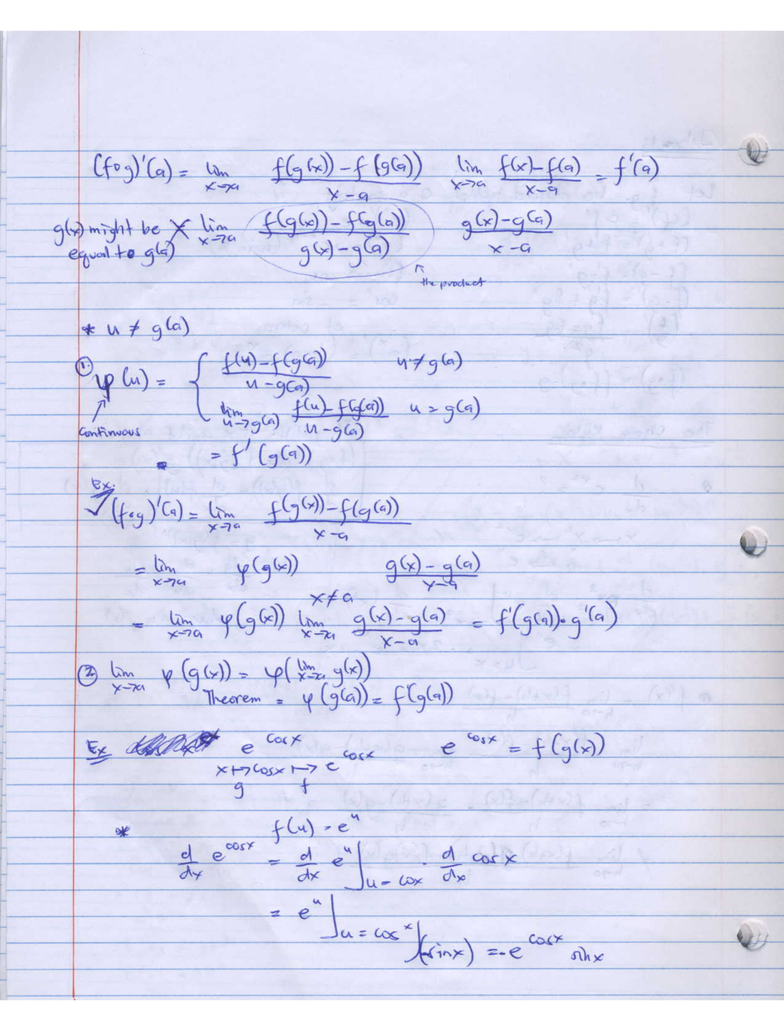 (f∘g)'(a) = lim x→a f(g(x)) – f(g(a)) / x–a   lim x→a f(x)–f(a) / x–a = f'(a)
g(x) might be equal to g(a) × lim x→a f(g(x)) – f(g(a)) / g(x) – g(a)   g(x) – g(a) / x – a
↖ the product
* u ≠ g(a)
① φ(u) = { f(u) – f(g(a)) / u – g(a)   u ≠ g(a)
lim u→g(a) f(u) – f(g(a)) / u – g(a)   u = g(a)
continuous
= f'(g(a))
Ex.
✓ (f∘g)'(a) = lim x→a f(g(x)) – f(g(a)) / x–a
= lim x→a φ(g(x))   g(x) – g(a) / x–a
x≠a
= lim x→a φ(g(x)) lim x→a g(x) – g(a) / x–a = f'(g(a))•g'(a)
② lim x→a φ(g(x)) = φ(lim x→a g(x))
Theorem = φ(g(a)) = f'(g(a))
Ex e^cosx   e^cosx = f(g(x))
x↦cosx↦e^cosx
g   f
* f(u) = e^u
d/dx e^cosx = d/dx e^u | u = cox · d/dx cosx
= e^u | u = cosx (-sinx) = -e^cosx sinx